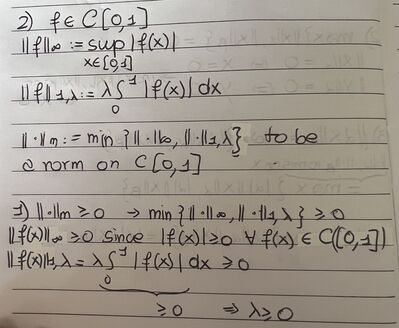 2) f ∈ C[0,1]
||f||∞ := sup |f(x)|
x∈[0,1]
||f||1,λ := λ∫₀¹ |f(x)| dx
||·||m := min {||·||∞, ||·||1,λ} to be
a norm on C[0,1]
1) ||·||m ≥ 0 → min{||·||∞, ||·||1,λ} ≥ 0
||f(x)||∞ ≥ 0 since |f(x)| ≥ 0 ∀ f(x) ∈ C([0,1])
||f(x)||1,λ = λ∫₀¹ |f(x)| dx ≥ 0
≥ 0 ⇒ λ ≥ 0